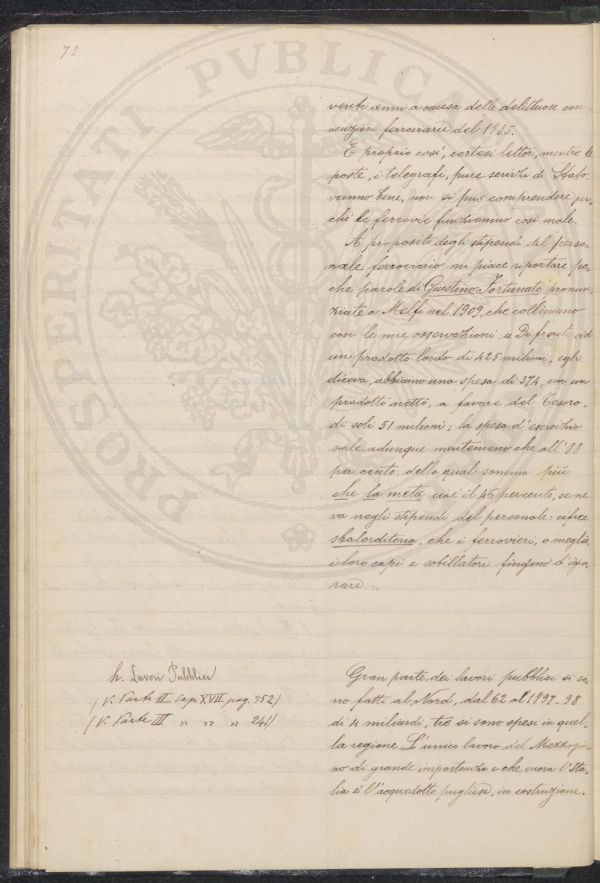 72
venti anni a causa delle delittuose con-
venzioni ferroviarie del 1885.
E proprio così, cortesi lettori, mentre le
poste, i telegrafi, pure servizi di Stato
vanno bene, non si può comprendere per-
chè le ferrovie funzionino così male.
A proposito degli stipendi del perso-
nale ferroviario mi piace riportare po-
che parole di Giustino Fortunato pronun-
ziate a Melfi nel 1909, che collimano
con le mie osservazioni: « Di fronte ad
un prodotto lordo di 425 milioni, egli
diceva, abbiamo una spesa di 374, con un
prodotto netto, a favore del Tesoro,
di soli 51 milioni; la spesa d'esercizio
sale adunque nientemeno che all'88
per cento, della qual somma più
che la metà cioè il 46 per cento, se ne
va negli stipendi del personale: cifra
sbalorditoria, che i ferrovieri, o meglio,
i loro capi e sobillatori fingono d'igno-
rare».
h. Lavori Pubblici
(V. Parte II. Cap. XVII, pag. 352)
(V. Parte III " " " 241)
Gran parte dei lavori pubblici si so-
no fatti al Nord, dal 62 al 1897-98
di 4 miliardi, tre si sono spesi in quel-
la regione. L'unico lavoro del Mezzogior-
no di grande importanza e che onora l'Ita-
lia è l'acquedotto pugliese, in costruzione.
PROSPERITATI PVBLICAE